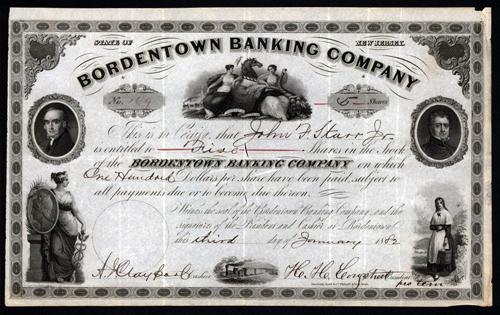 STATE OF NEW JERSEY.
BORDENTOWN BANKING COMPANY
No. 169 5 Shares
This is to Certify, that John F. Starr Jr.
is entitled to Shares in the Stock
of the BORDENTOWN BANKING COMPANY on which
One Hundred Dollars per share have been paid, subject to
all payments due or to become due thereon.
Witness the seal of the Bordentown Banking Company, and the
signatures of the President and Cashier at Bordentown
this third day of January 1882
Cashier H. H. President
pro tem